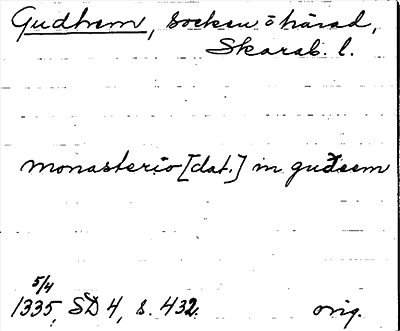 Gudhem, socken o härad,
Skarab. l.
monasterio [dat.] in gudeem
5/4
1335, SD 4, s. 432. orig.